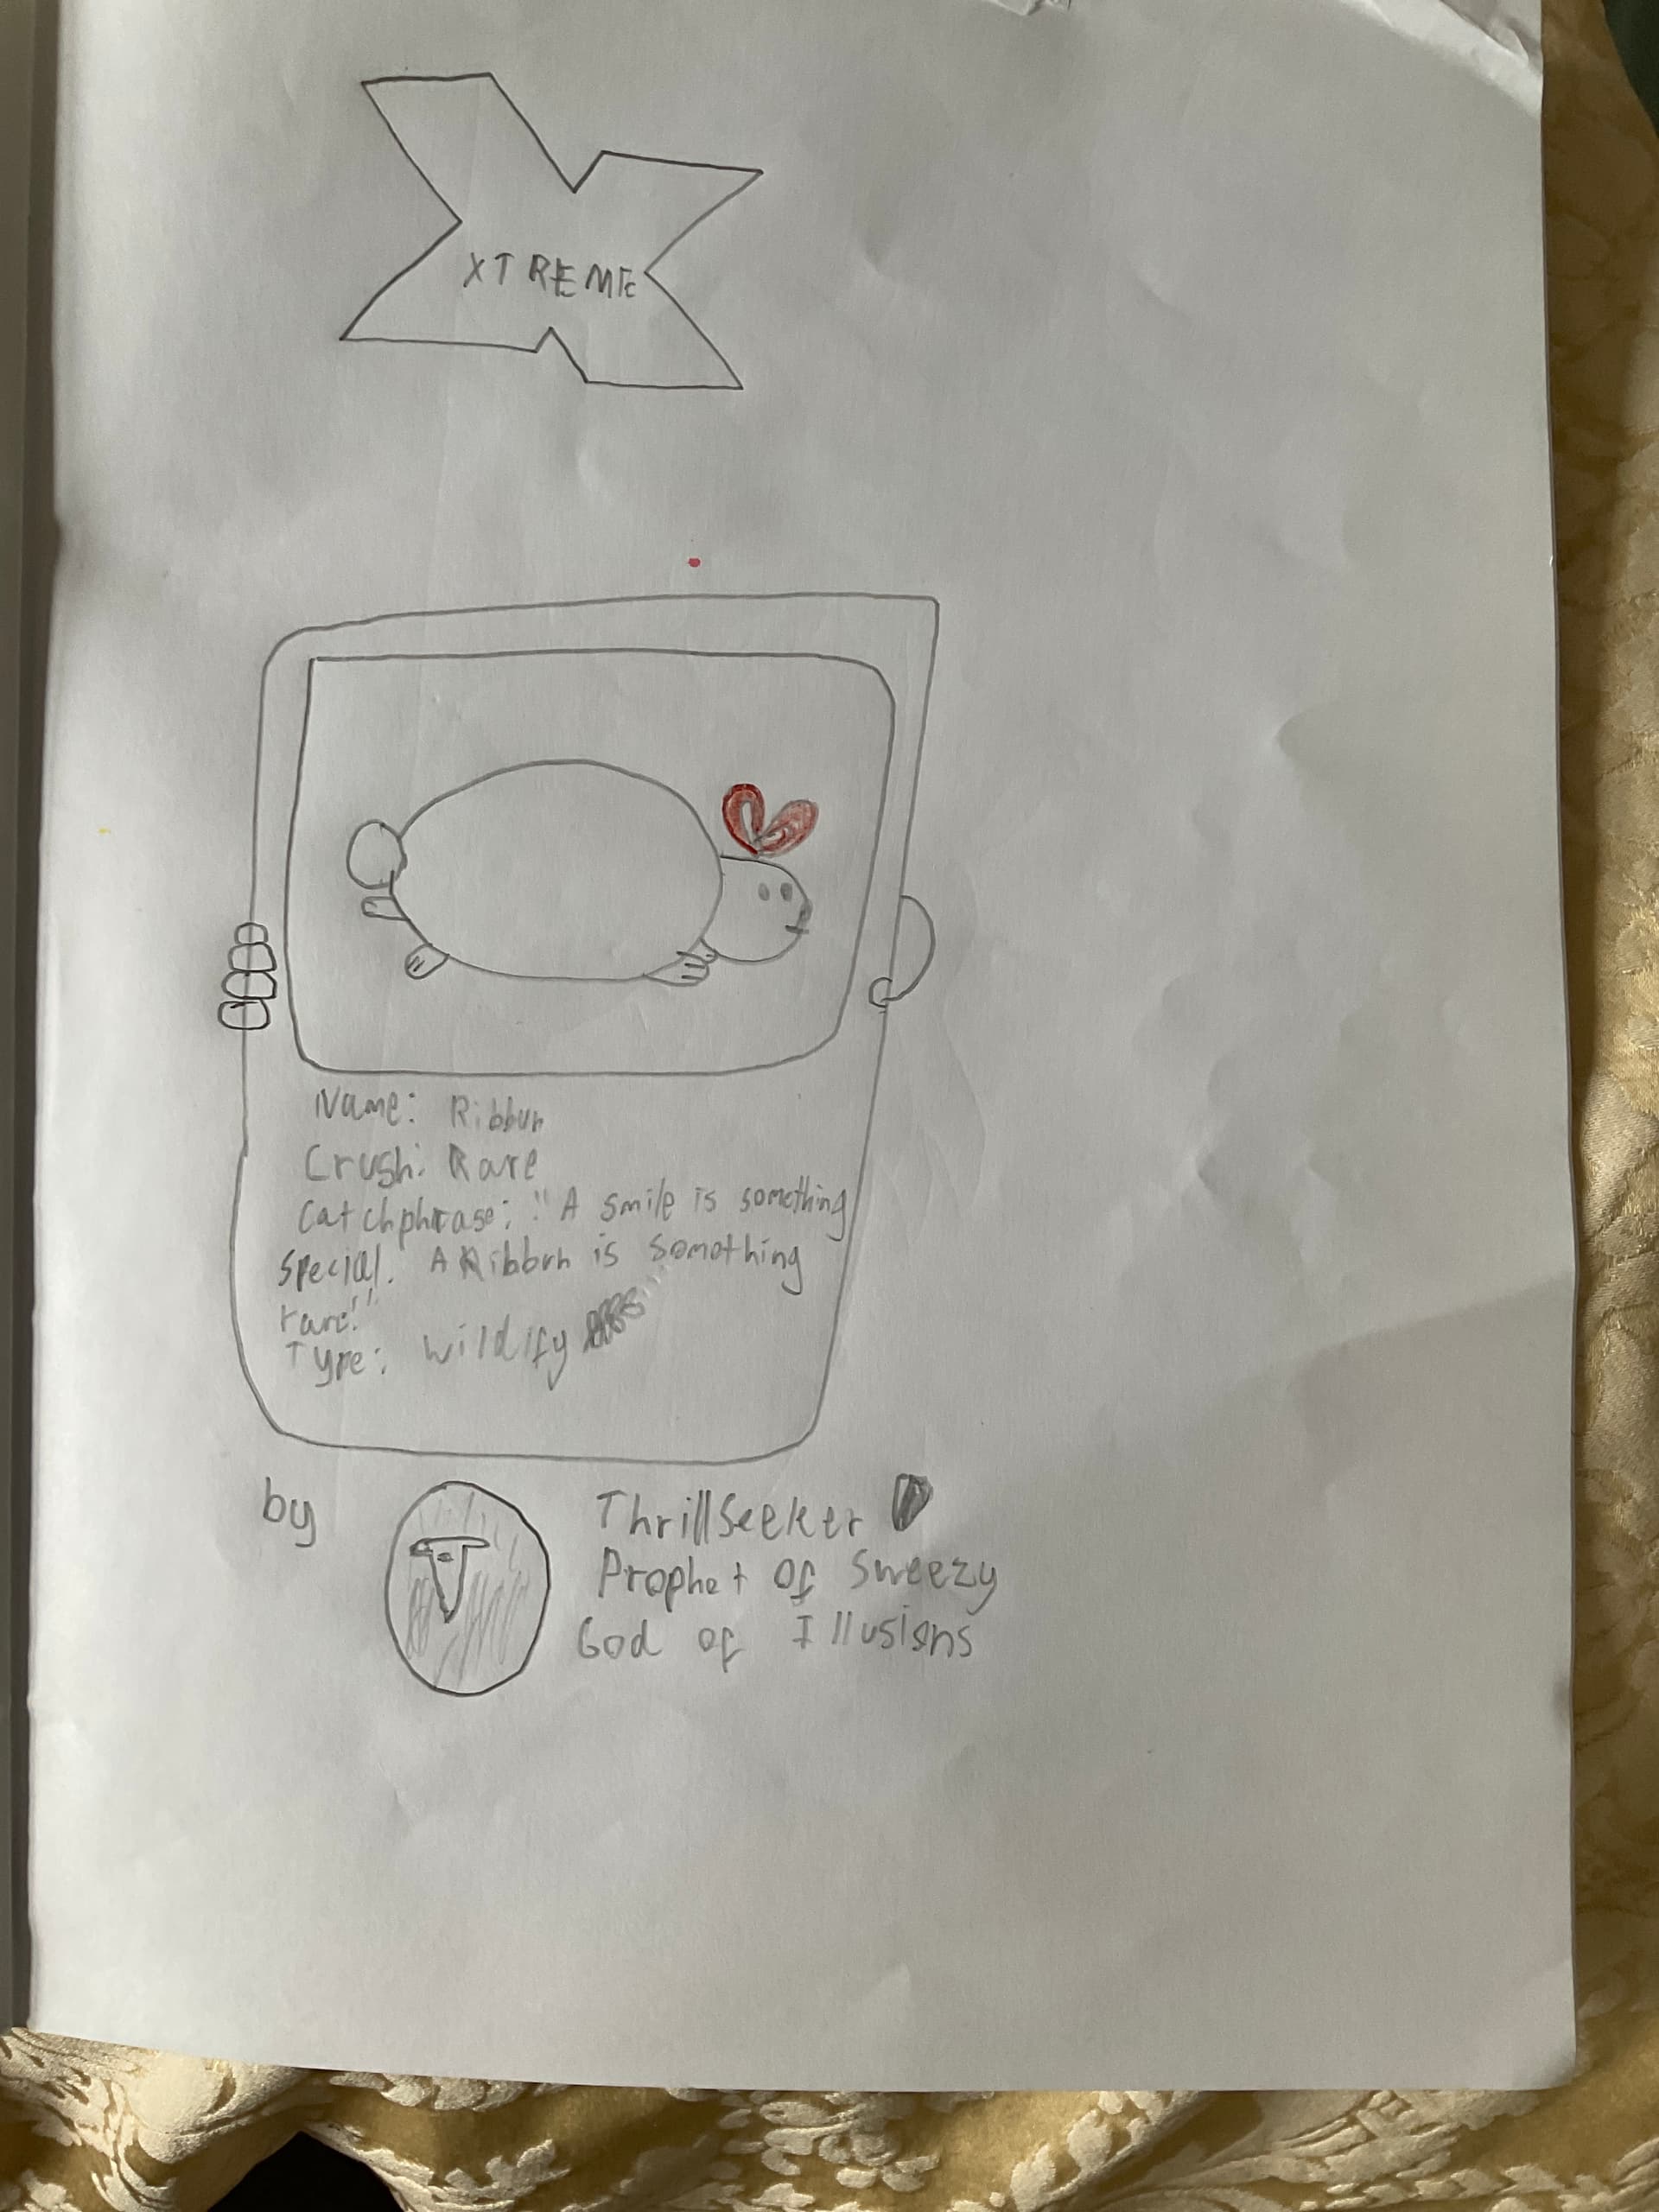 XTREME
Name: Ribbun
Crush: Rare
Catchphrase: "A smile is something
special. A Ribbun is something
rare!"
Type: Wildify
by
ThrillSeeker
Prophet of Sweezy
God of Illusions